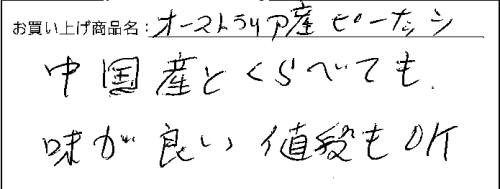 お買い上げ商品名：オーストラリア産ピーナッツ
中国産とくらべても
味が良い 値段もOK